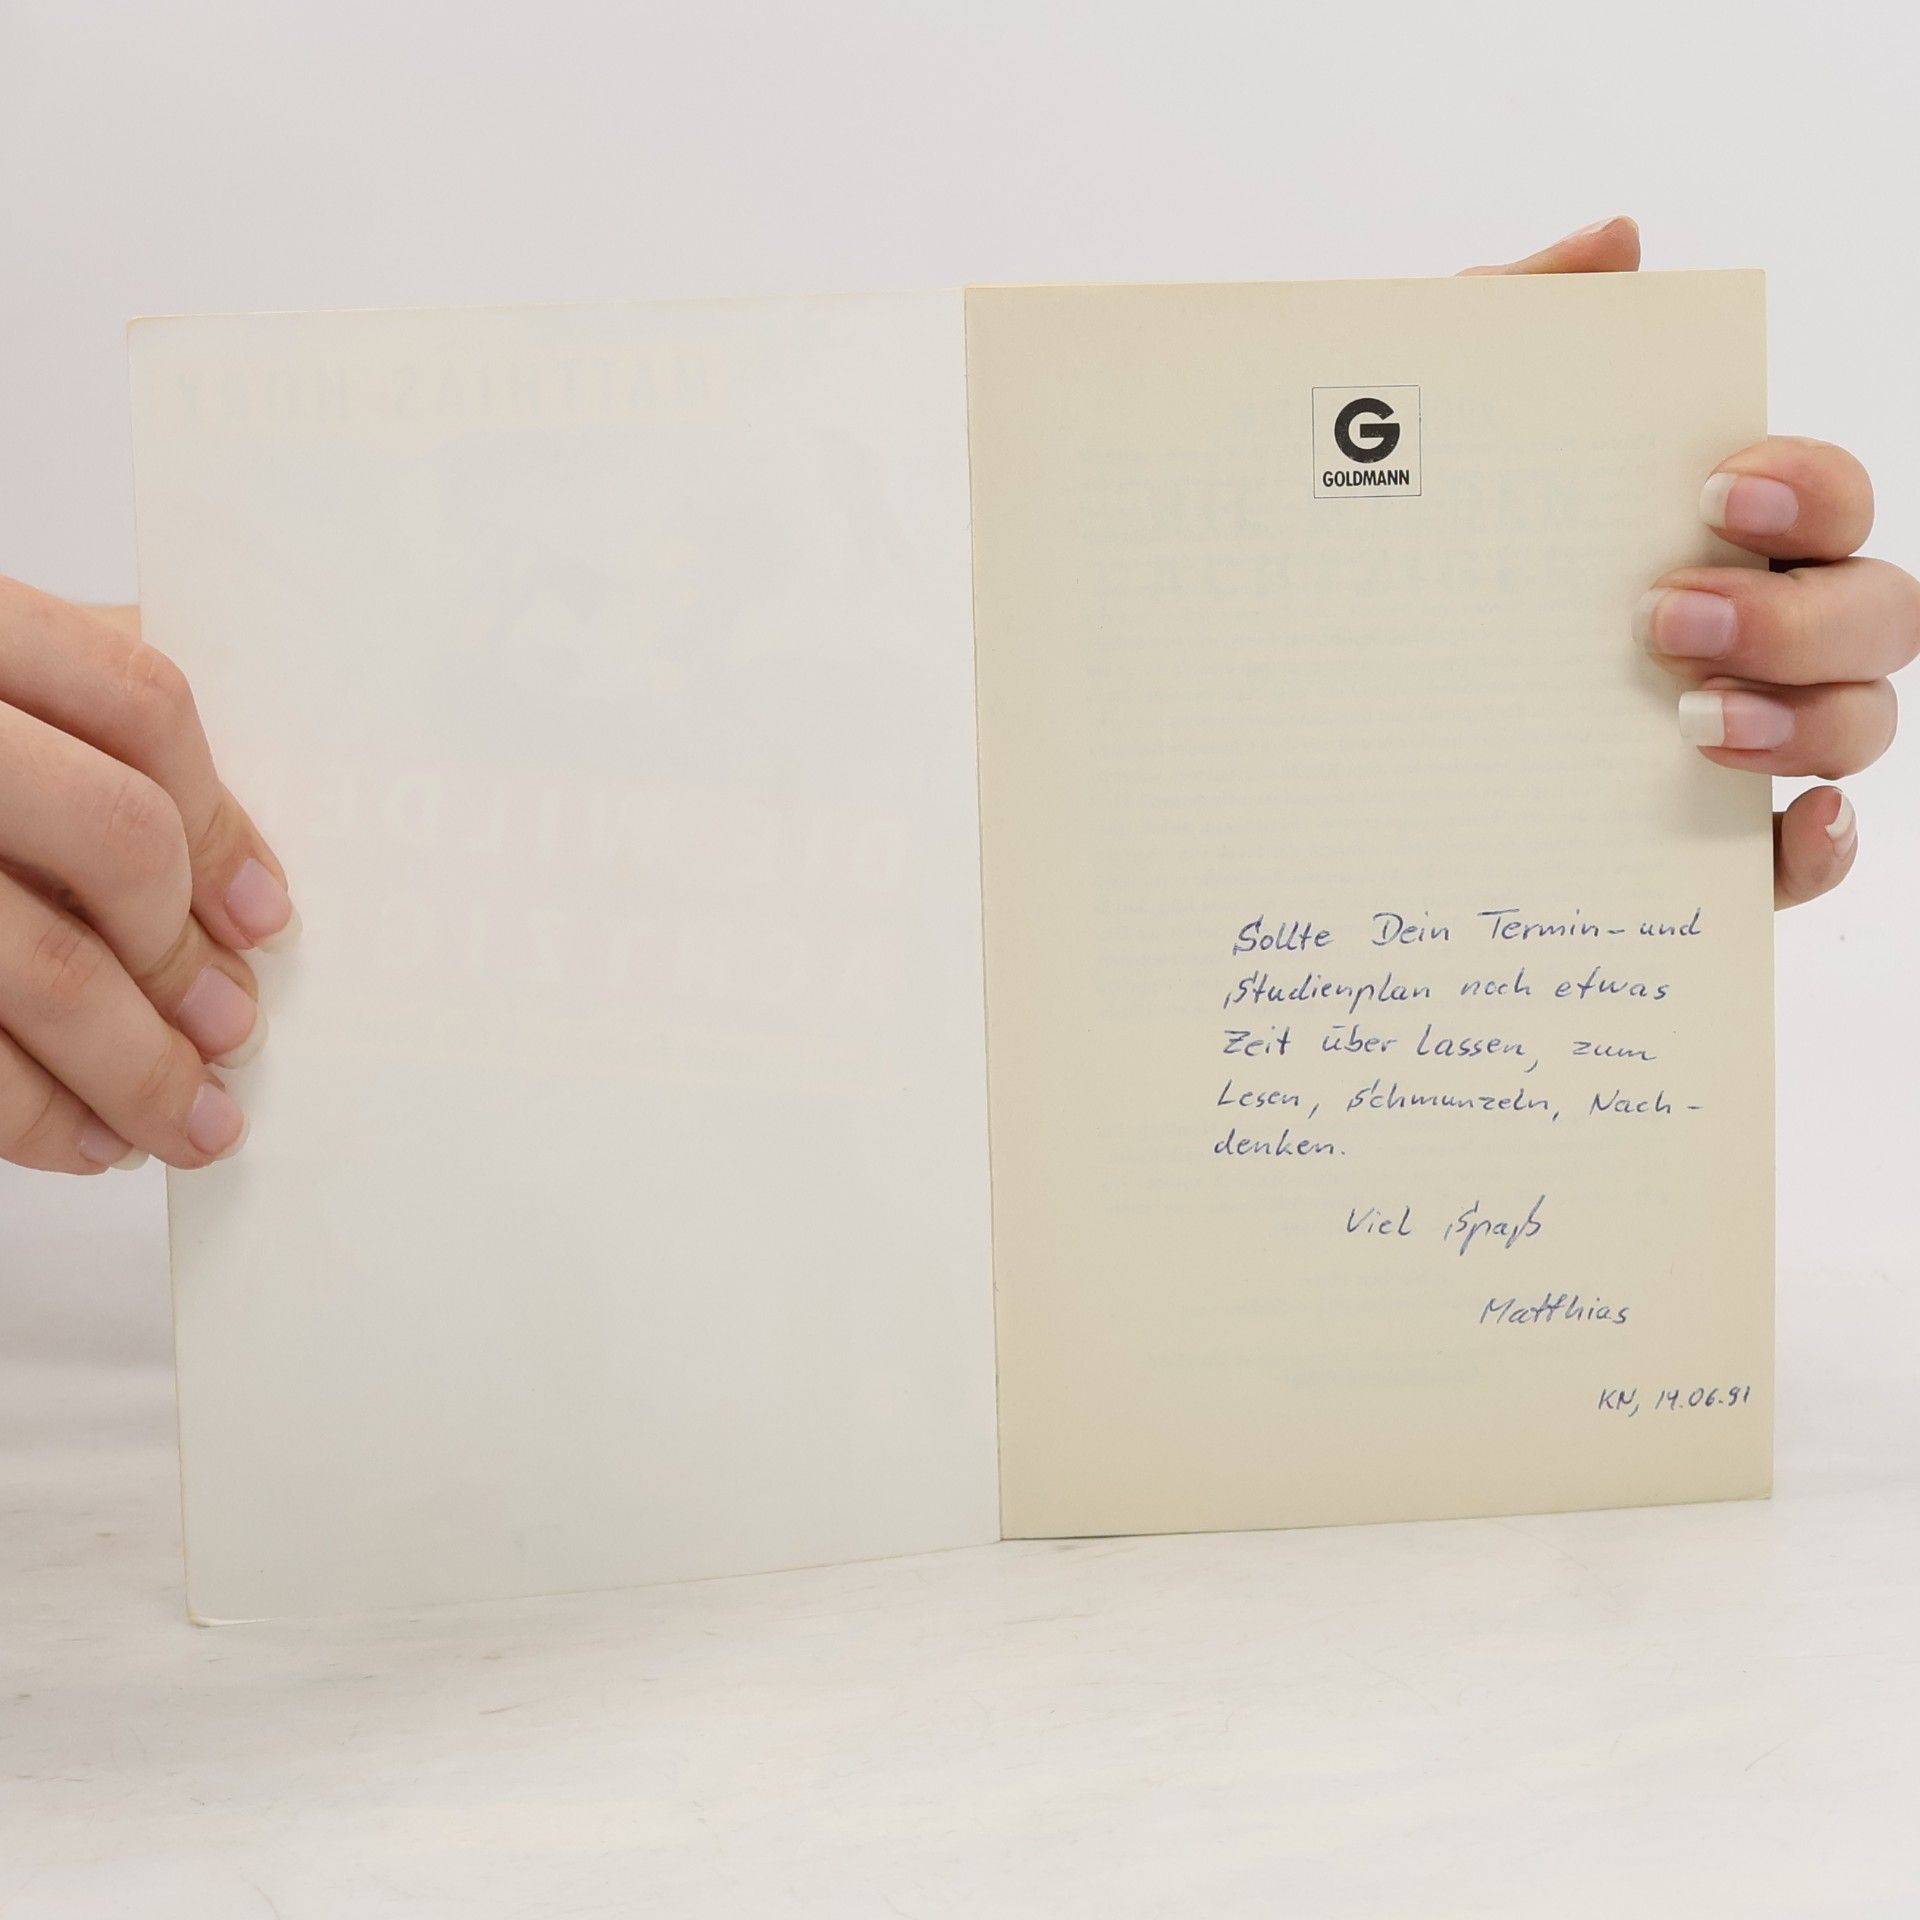 G
GOLDMANN
Sollte Dein Termin- und
Studienplan noch etwas
Zeit über lassen, zum
Lesen, Schmunzeln, Nach-
denken.
Viel Spaß
Matthias
KN, 14.06.91